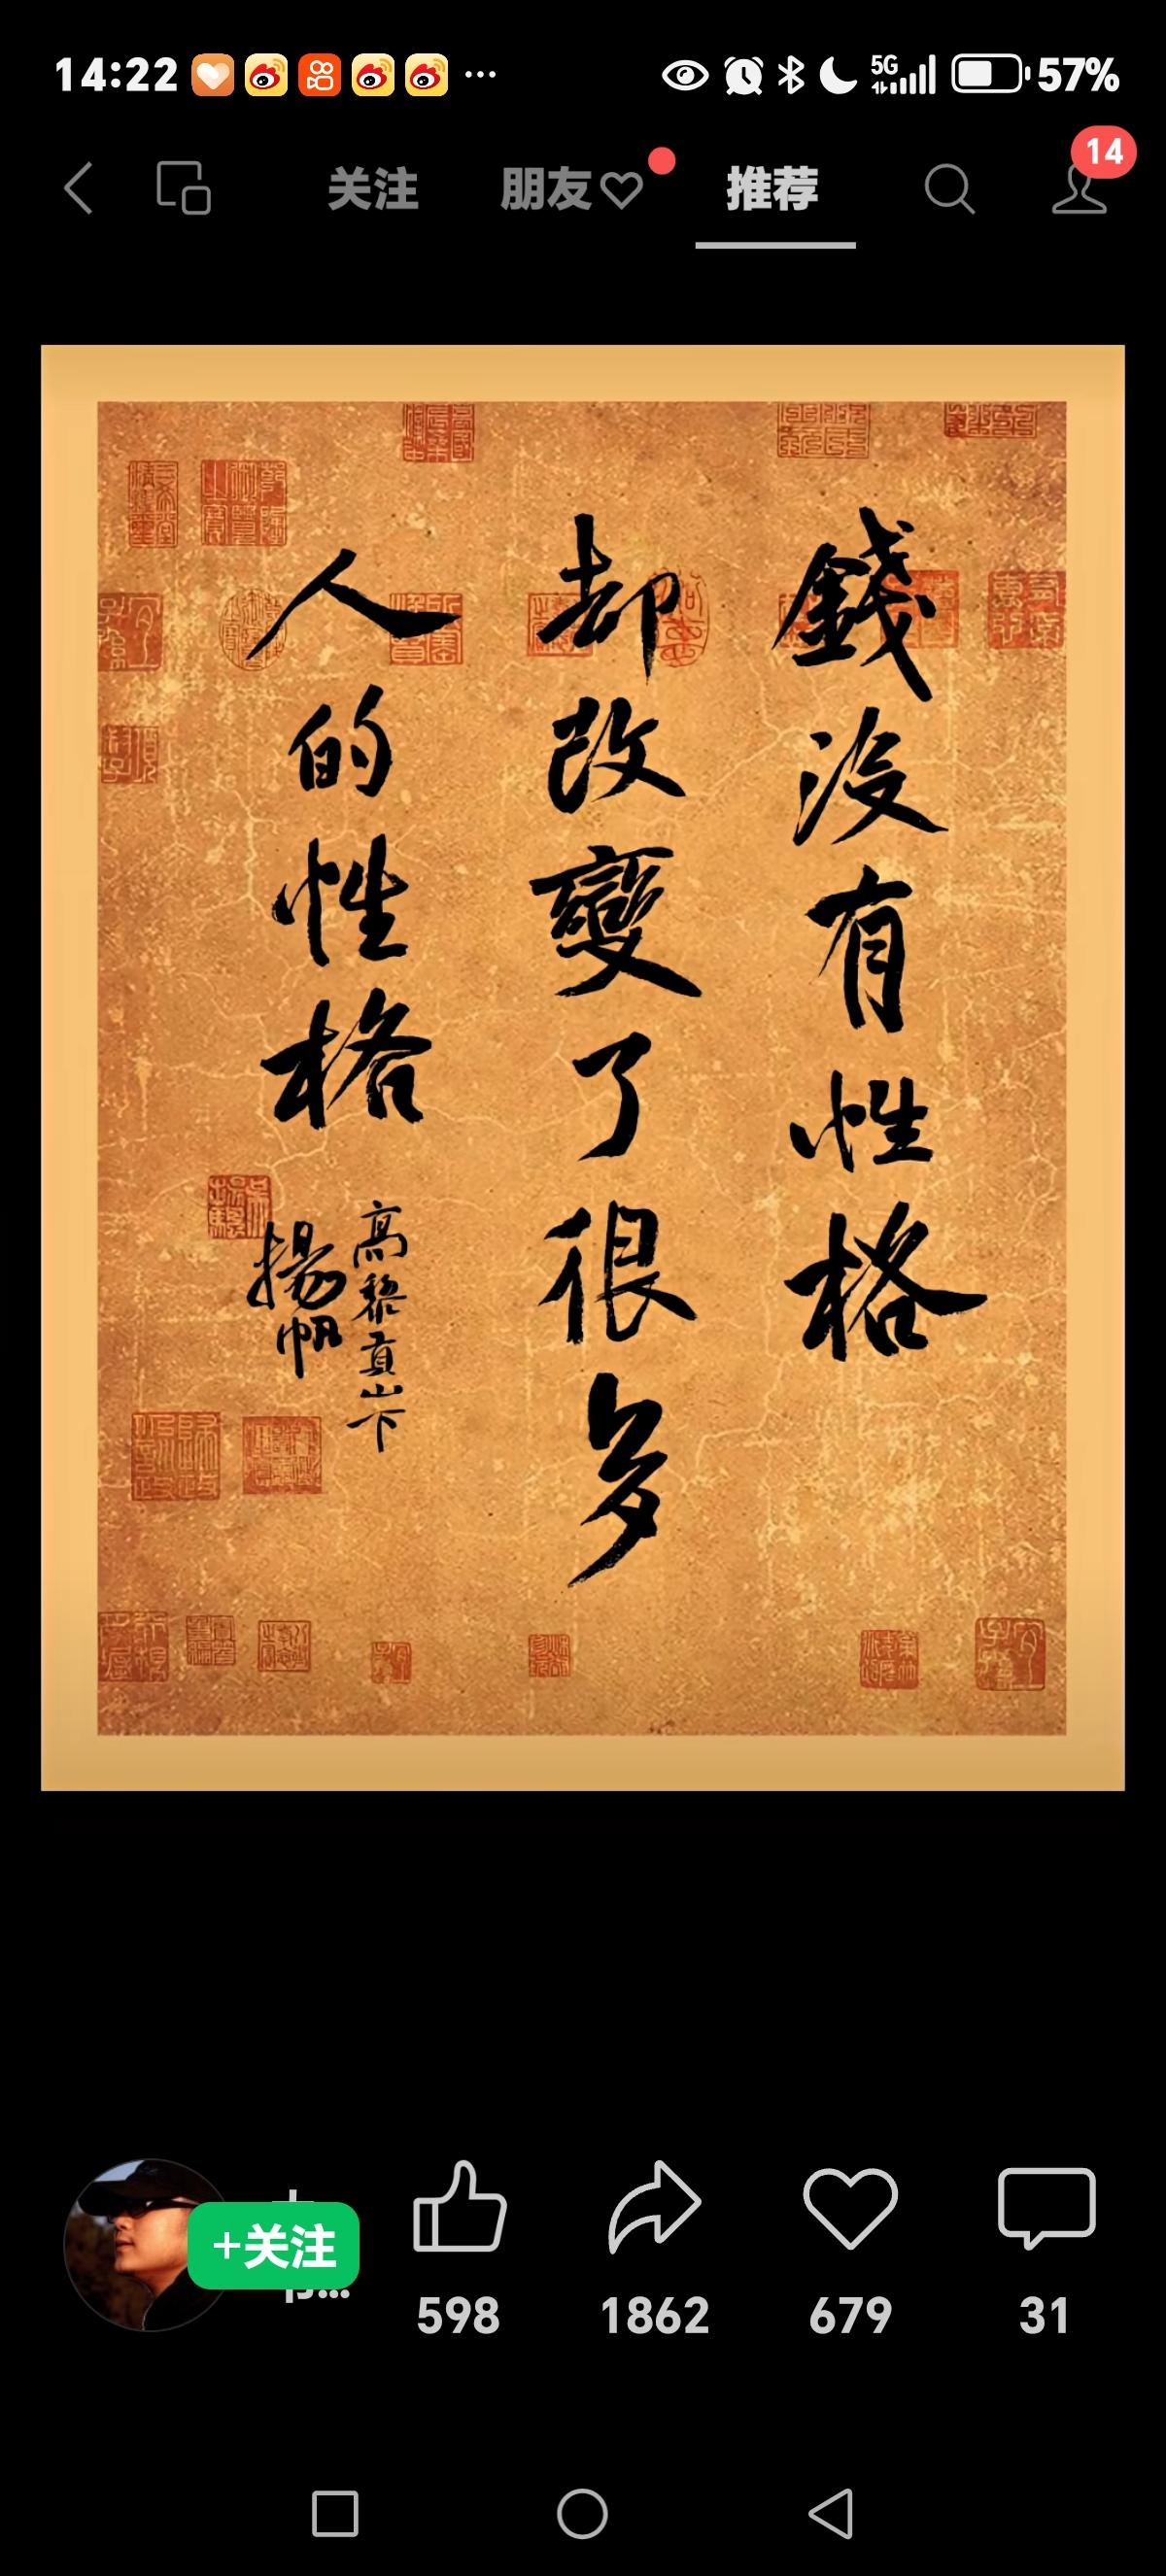 14:22
5G
57%
关注 朋友 推荐
14
錢沒有性格
却改變了很多
人的性格
高黎貢山下
揚帆
+关注
598 1862 679 31